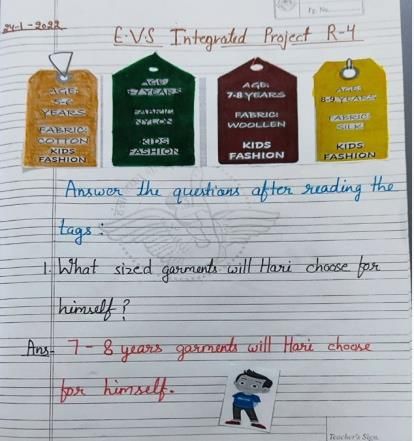 24-1-2022
Pg. No.
E.V.S Integrated Project R-4
AGE:
5-6
YEARS
FABRIC:
COTTON
KIDS
FASHION
AGE:
6-7 YEARS
FABRIC:
NYLON
KIDS
FASHION
AGE:
7-8 YEARS
FABRIC:
WOOLLEN
KIDS
FASHION
AGE:
8-9 YEARS
FABRIC:
SILK
KIDS
FASHION
Answer the questions after reading the
tags :
1. What sized garments will Hari choose for
himself?
Ans- 7-8 years garments will Hari choose
for himself.
Teacher's Sign